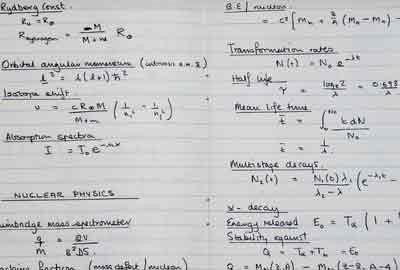 Rydberg Const.
R₀ = R∞
R Hydrogen = M / M + m R∞
Orbital angular momentum
l² = l(l+1) ħ²
Isotope shift
υ = c R∞ M / M + m (1/n₁² - 1/n₂²)
Absorption spectra
I = I₀ e
NUCLEAR PHYSICS
mass spectrometer
q / m =
fraction (mass defect / nucleon)
B.E / nucleon
= c² [ Mₙ +
Transformation rates
N(t) = N₀ e^-λt
Half life
τ = logₑ2 / λ = 0.693
Mean life time
t̄ = ∫ t dN / N₀
t̄ = 1/λ
Multistage decays
N₂(t) = N₁(0) λ₁ / λ₂ - λ₁ (e^-λ₁t -
α - decay
Energy released E₀ = Tα (1 +
Stability against
Q = Tα + Tₕ = E₀